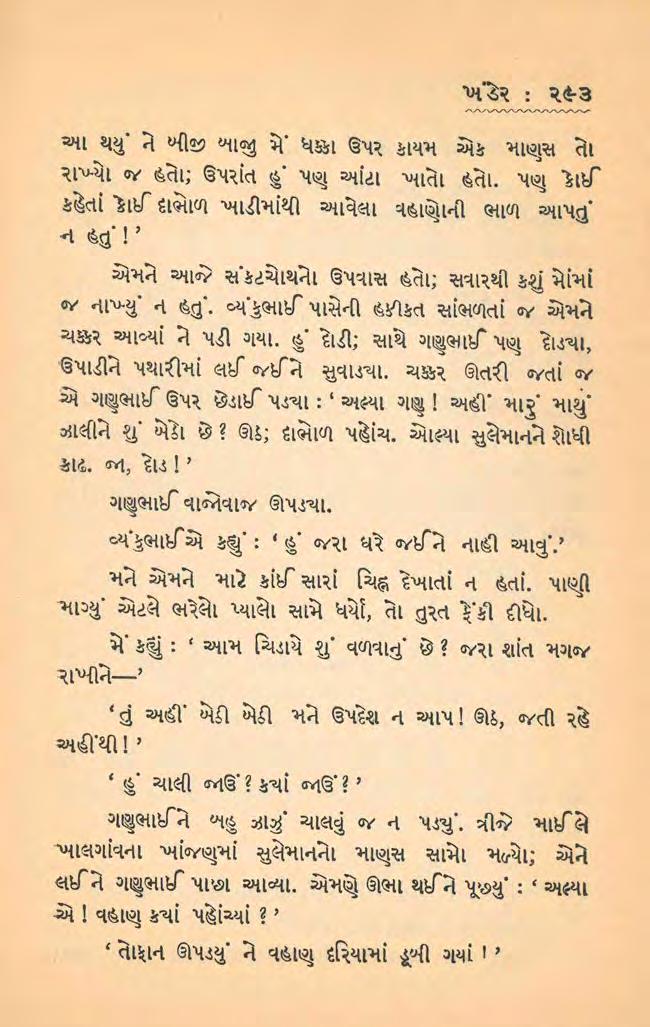 ખંડેર : ૨૯૩
આ થયું ને બીજી બાજુ મેં ધક્કા ઉપર કાયમ એક માણસ તો
રાખ્યો જ હતો; ઉપરાંત હું પણ આંટા ખાતો હતો. પણ કોઈ
કહેતાં કોઈ દાભોળ ખાડીમાંથી આવેલા વહાણોની ભાળ આપતું
ન હતું ! ’
એમને આજે સંકટચોથનો ઉપવાસ હતો; સવારથી કશું મોંમાં
જ નાખ્યું ન હતું. વ્યંકુભાઈ પાસેની હકીકત સાંભળતાં જ એમને
ચક્કર આવ્યાં ને પડી ગયા. હું દોડી; સાથે ગણુભાઈ પણ દોડ્યા,
ઉપાડીને પથારીમાં લઈ જઈને સુવાડ્યા. ચક્કર ઊતરી જતાં જ
એ ગણુભાઈ ઉપર છેડાઈ પડ્યા : ‘ અલ્યા ગણુ ! અહીં મારું માથું
ઝાલીને શું બેઠો છે ? ઊઠ; દાભોળ પહોંચ. ઓલ્યા સુલેમાનને શોધી
કાઢ. જા, દોડ ! ’
ગણુભાઈ વાજોવાજ ઊપડ્યા.
વ્યંકુભાઈએ કહ્યું : ‘ હું જરા ઘરે જઈને નાહી આવું.’
મને એમને માટે કાંઈ સારાં ચિહ્ન દેખાતાં ન હતાં. પાણી
માગ્યું એટલે ભરેલો પ્યાલો સામે ધર્યો, તો તુરત ફેંકી દીધો.
મેં કહ્યું : ‘ આમ ચિડાયે શું વળવાનું છે ? જરા શાંત મગજ
રાખીને—’
‘તું અહીં બેઠી બેઠી મને ઉપદેશ ન આપ ! ઊઠ, જતી રહે
અહીંથી ! ’
‘ હું ચાલી જાઉં ? ક્યાં જાઉં ? ’
ગણુભાઈને બહુ ઝાઝું ચાલવું જ ન પડ્યું. ત્રીજે માઈલે
ખાલગાંવના ખાંજણમાં સુલેમાનનો માણસ સામો મળ્યો; એને
લઈને ગણુભાઈ પાછા આવ્યા. એમણે ઊભા થઈને પૂછ્યું : ‘ અલ્યા
એ ! વહાણ ક્યાં પહોંચ્યાં ? ’
‘ તોફાન ઊપડ્યું ને વહાણ દરિયામાં ડૂબી ગયાં ! ’